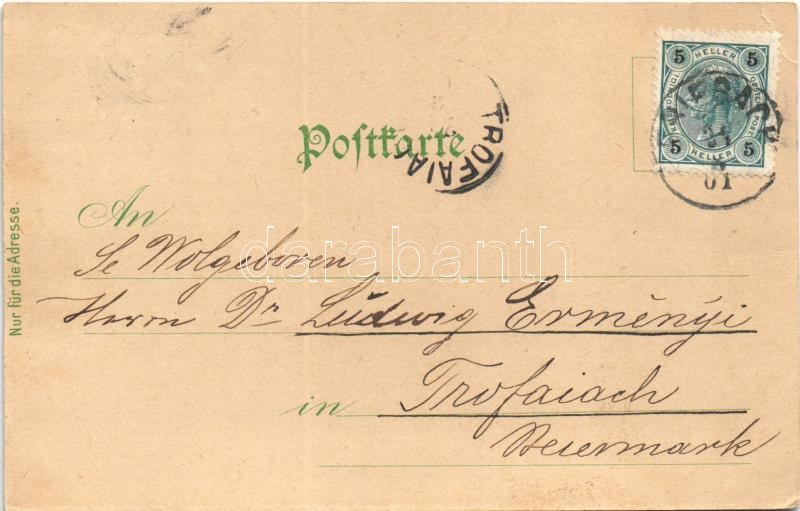 5 HELLER 5
5 HELLER 5
01
Postkarte
TROFAIA
An
Se Wolgeboren
Herrn Dr Ludwig Erményi
in Trofaiach
Steiermark
Nur für die Adresse.
darabanth